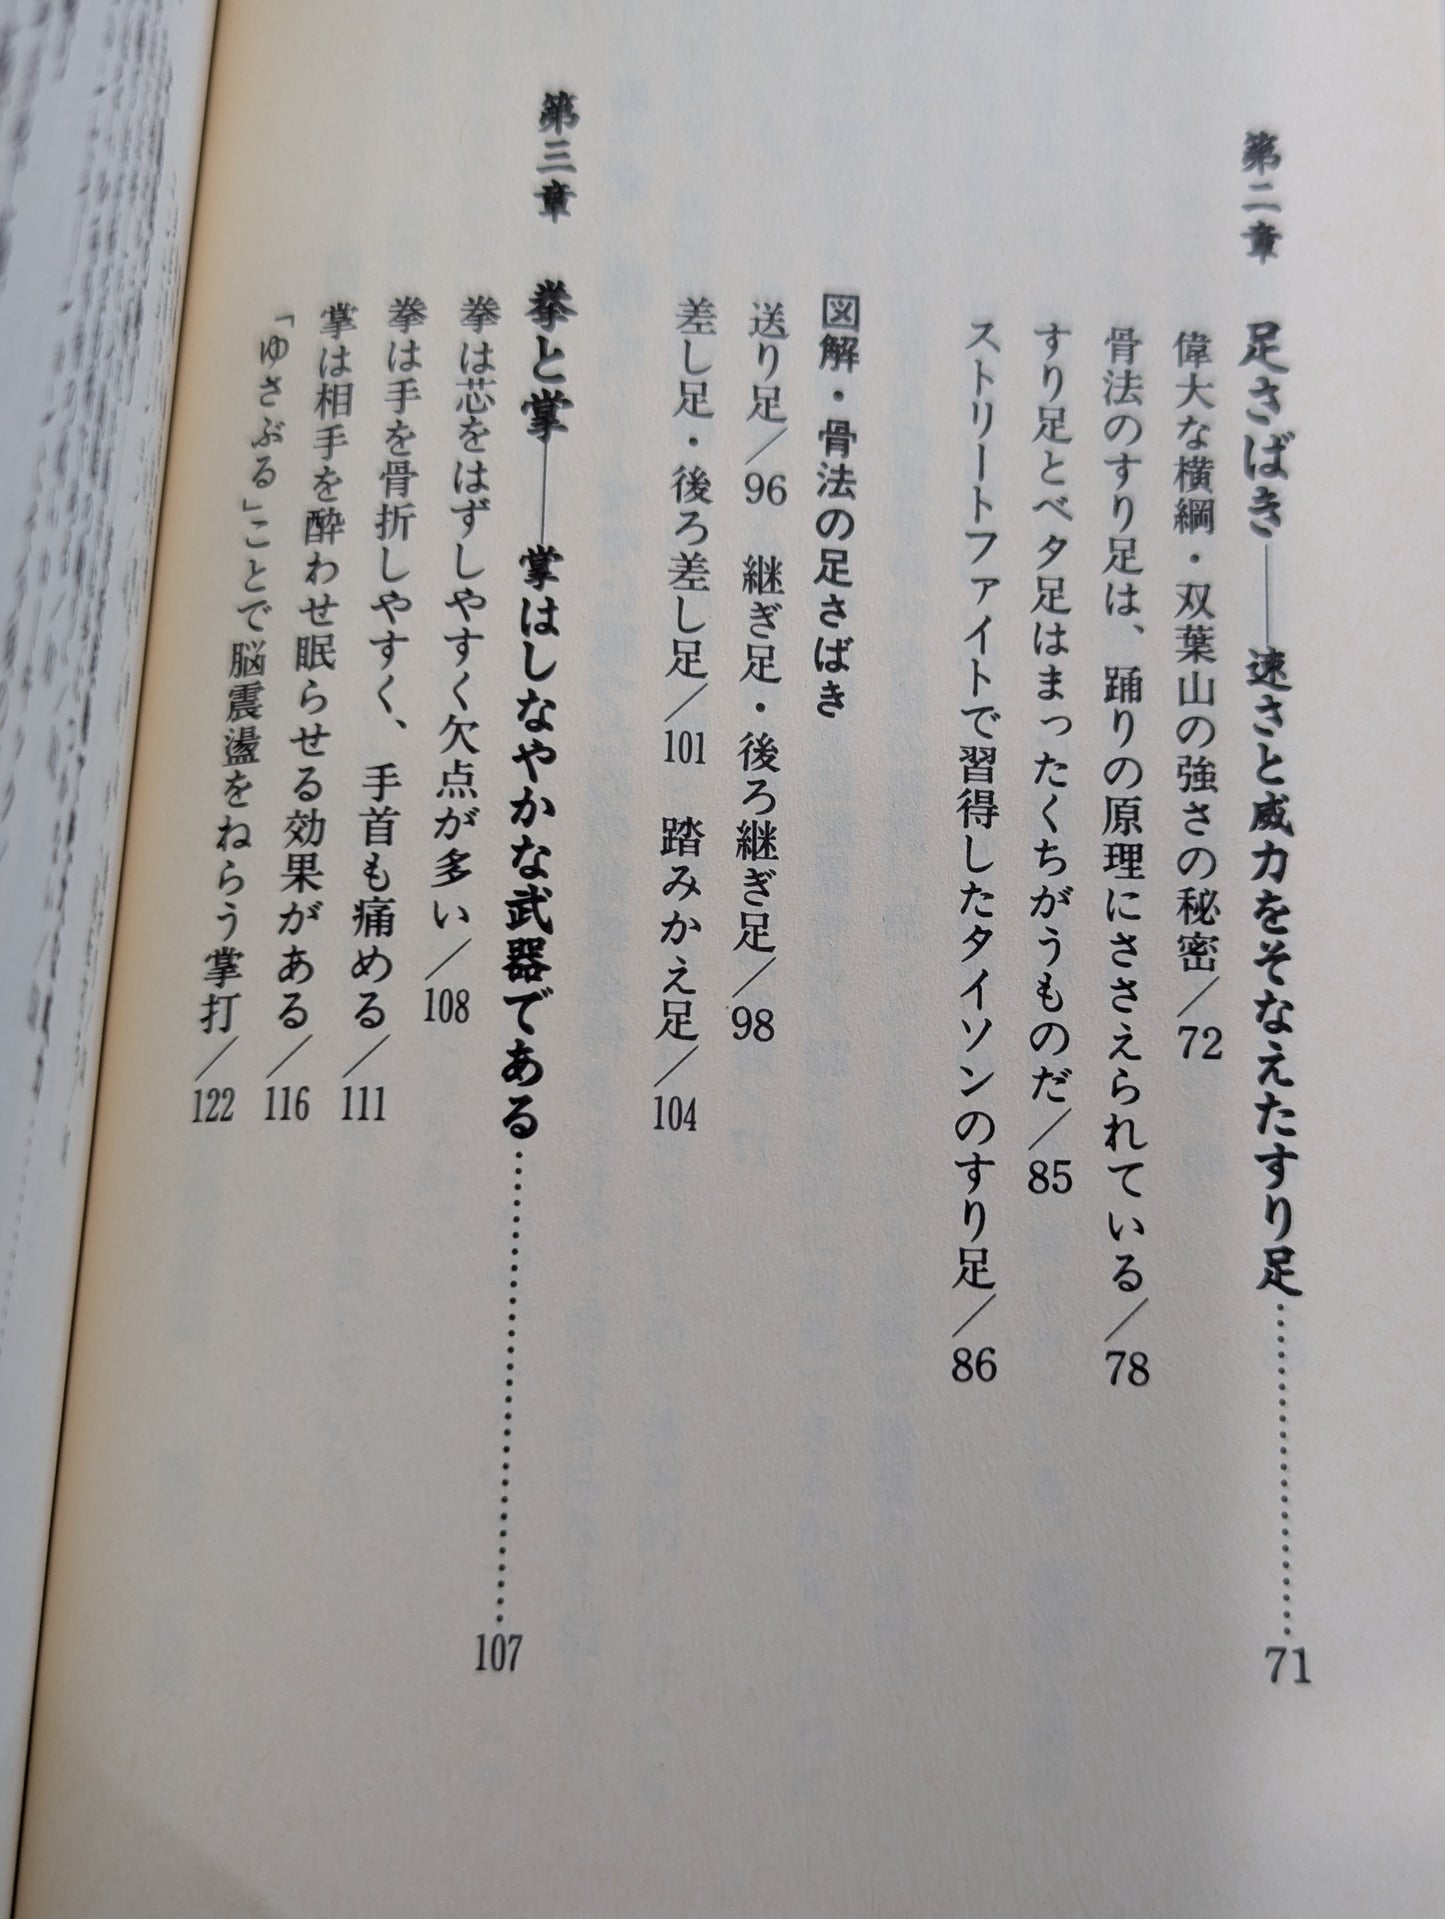 第二章　足さばき――速さと威力をそなえたすり足……………………71
偉大な横綱・双葉山の強さの秘密／72
骨法のすり足は、踊りの原理にささえられている／78
すり足とベタ足はまったくちがうものだ／85
ストリートファイトで習得したタイソンのすり足／86
図解・骨法の足さばき
送り足／96　継ぎ足・後ろ継ぎ足／98
差し足・後ろ差し足／101　踏みかえ足／104
第三章　拳と掌――掌はしなやかな武器である……………………107
拳は芯をはずしやすく欠点が多い／108
拳は手を骨折しやすく、手首も痛める／111
掌は相手を酔わせ眠らせる効果がある／116
「ゆさぶる」ことで脳震盪をねらう掌打／122